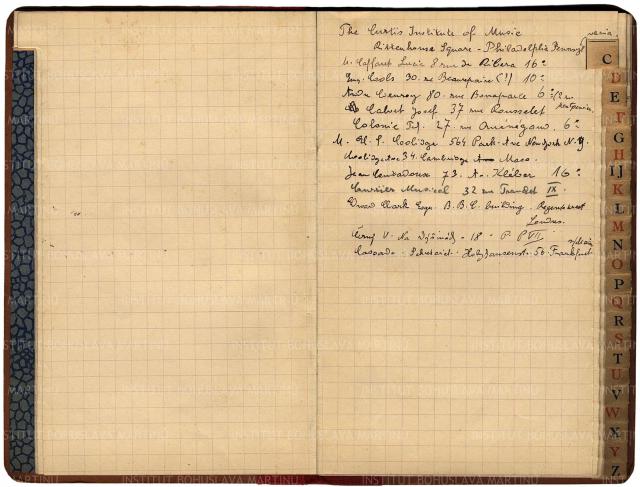 The Curtis Institute of Music
Rittenhouse Square - Philadelphia Pennsyl
vania.
C
M. Caffaret Lucie 8 rue de Ribera 16e
Eug. Cools 30. rue Beaurepaire (!) 10e
80. rue Bonaparte 6e
Calvet Josef 37 rue Rousselet
Colonie Tch. 27 rue Guénégaud. 6e
M. E. S. Coolidge 564 Park Ave New York N.Y.
Coolidge 34 Cambridge Mass.
Jean Cartadoux 73. Av. Kléber 16e
Courrier Musical 32 rue Tronchet IX.
Edward Clark Esqu. B.B.C. building. Regent street
Londres.
Černý V. Na 18 - P. VII
Cassado - Sekretariat. Holzhausenstr. 56 Frankfurt
D
E
F
G
H
IJ
K
L
M
N
O
P
Q
R
S
T
U
V
W
X
Y
Z
INSTITUT BOHUSLAVA MARTINŮ